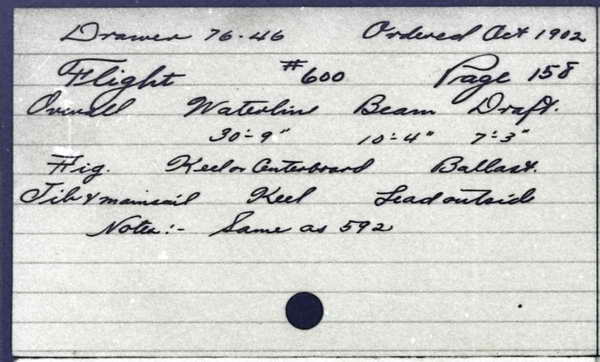 Drawer 76-46 Ordered Oct 1902
Flight #600 Page 158
Overall Waterline Beam Draft.
30'-9" 10'-4" 7'-3"
Fig. Keel or Centerboard Ballast.
Jib & mainsail Keel Lead outside
Notes:- Same as 592